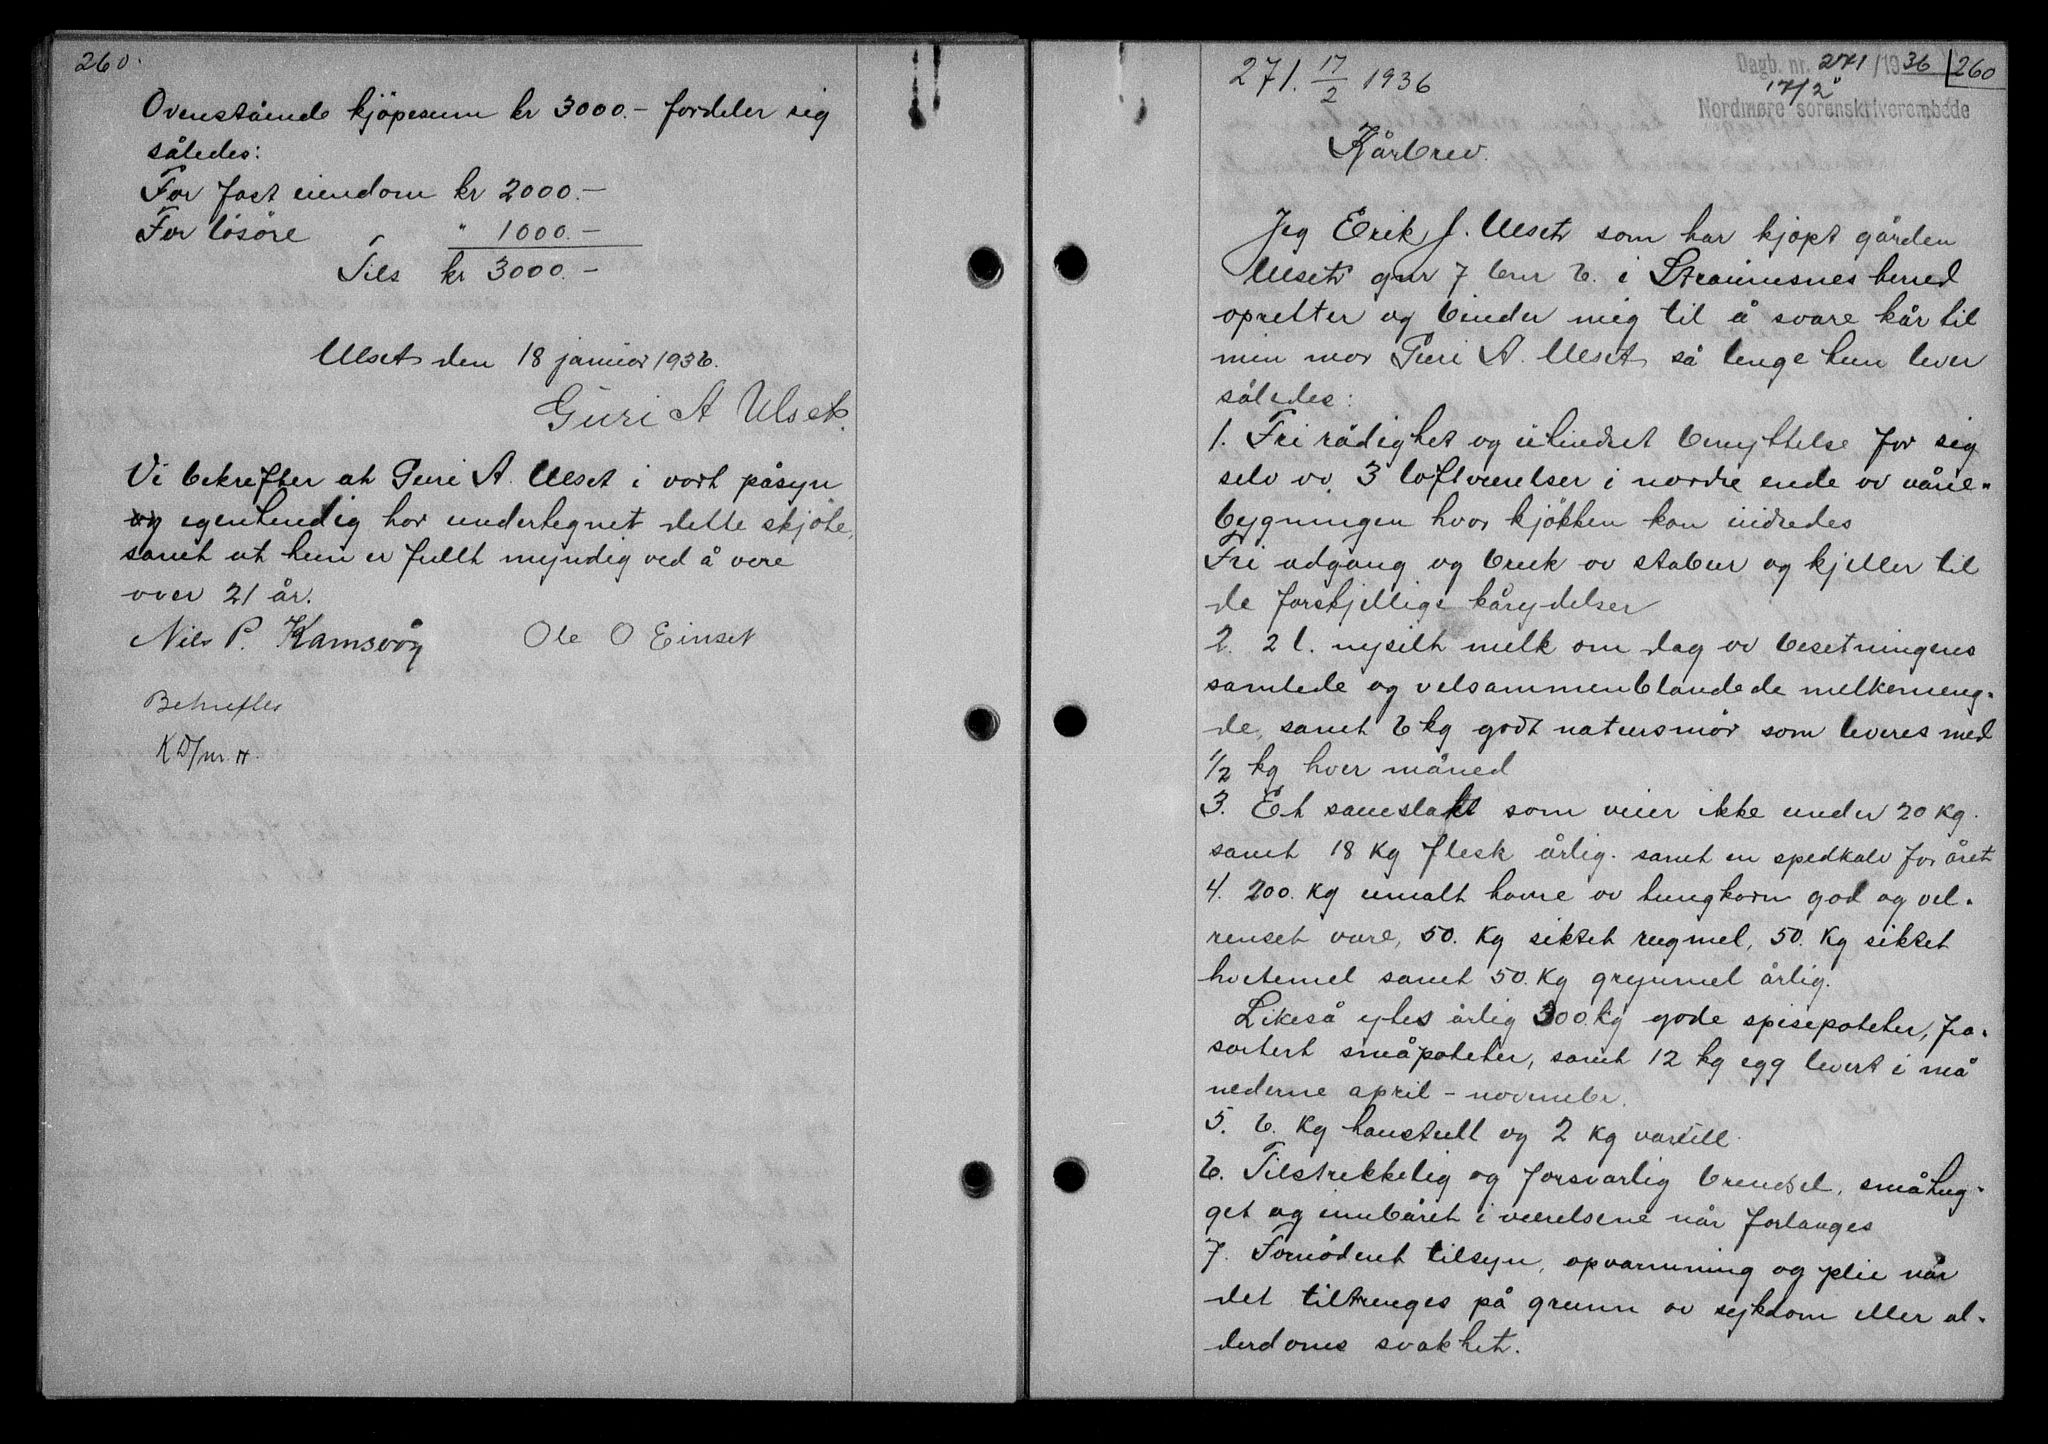 260.
Ovenstående kjöpesum kr 3000.- fordeler sig
således:
For fast eiendom kr 2000.-
For lösöre " 1000.-
Tils kr 3000.-
Ulset den 18 januar 1936.
Guri A Ulset.
Vi bekrefter at Guri A. Ulset i vort påsyn
og egenhendig har undertegnet dette skjöte,
samt at hun er fullt myndig ved å være
over 21 år.
Nils P. Kamsvåg Ole O Einset
Bekreftes
271. 17/2 1936
Dagb. nr. 271/1936 260
17/2
Nordmøre sorenskriverembede
Kårbrev.
Jeg Erik J. Ulset som har kjöpt gården
Ulset gnr 7 bnr 6. i Straumsnes herred
opretter og binder mig til å svare kår til
min mor Guri A. Ulset så lenge hun lever
således:
1. Fri rådighet og uhindret benyttelse for sig
selv av 3 loftværelser i nordre ende av våne-
bygningen hvor kjökken kan indredes
Fri adgang og bruk av stabur og kjeller til
de forskjellige kårydelser
2. 2 l. nysilt melk om dag av besetningens
samlede og velsammenblandede melkemeng-
de, samt 6 kg godt natursmör som leveres med
1/2 kg hver måned
3. Et saueslakt som veier ikke under 20 kg.
samt 18 kg flesk årlig. samt en spedkalv for året
4. 200. kg umalt havre av tungkorn god og vel-
renset vare, 50. kg siktet rugmel, 50. kg siktet
hvetemel samt 50. kg grynmel årlig.
Likeså ytes årlig 300. kg gode spisepoteter, fra-
sortert småpoteter, samt 12 kg egg levert i må
nederne april - november.
5. 6. kg haustull og 2 kg vårull.
6. Tilstrekkelig og forsvarlig brendsel, småhug-
get og innbåret i værelsene når forlanges
7. Fornödent tilsyn, opvarmning og pleie når
det tiltrenges på grunn av sykdom eller al-
derdoms svakhet.